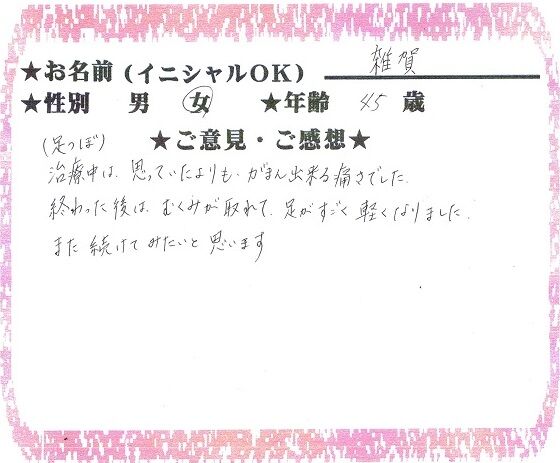 ★お名前(イニシャルOK) 雑賀
★性別 男 女 ★年齢 45 歳
(足つぼ) ★ご意見・ご感想★
治療中は、思っていたよりも、がまん出来る痛さでした。
終わった後は、むくみが取れて、足がすごく軽くなりました。
また続けてみたいと思います